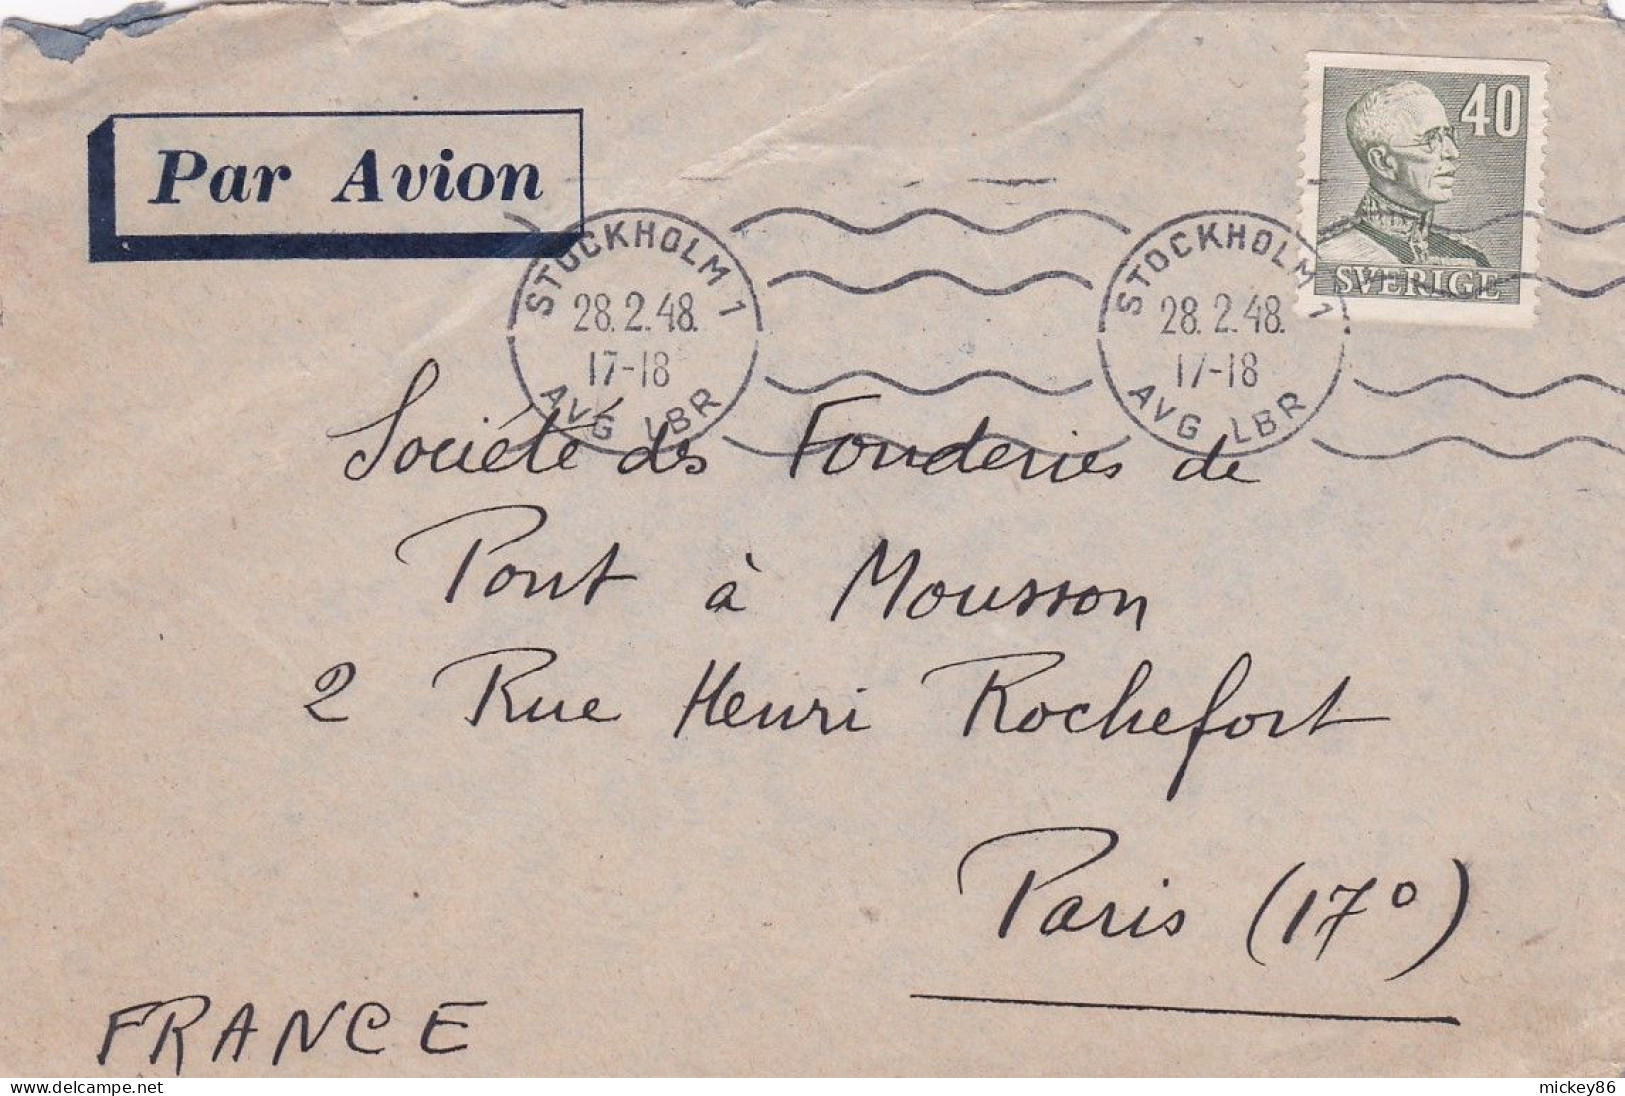 Par Avion
40
SVERIGE
STOCKHOLM 1
28.2.48.
17-18
AVG LBR
STOCKHOLM 1
28.2.48.
17-18
AVG LBR
Société des Fonderies de
Pont à Mousson
2 Rue Henri Rochefort
Paris (17°)
FRANCE
www.delcampe.net
mickey86